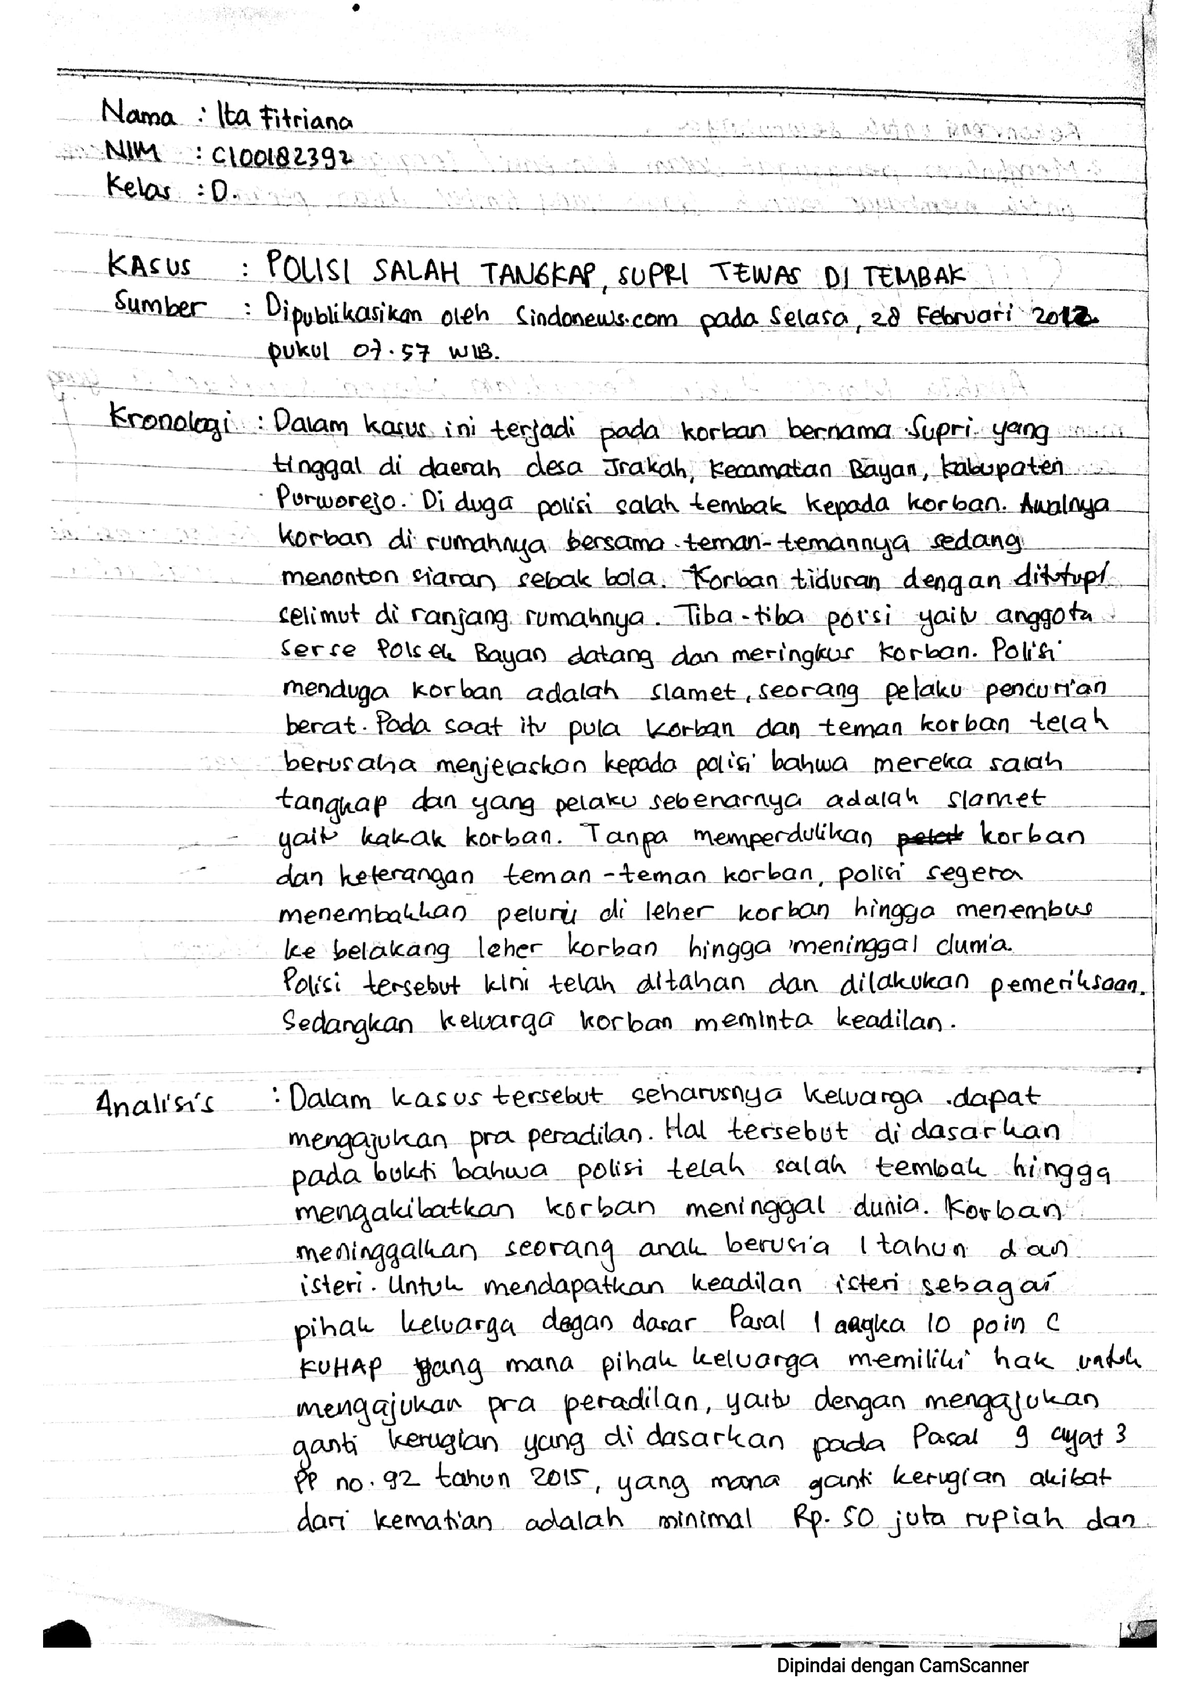 Nama : Ita Fitriana
NIM : C100182392
Kelas : D.
KASUS : POLISI SALAH TANGKAP, SUPRI TEWAS DI TEMBAK
Sumber : Dipublikasikan oleh Sindonews.com pada Selasa, 28 Februari 2012
pukul 07.57 WIB.
Kronologi : Dalam kasus ini terjadi pada korban bernama Supri yang
tinggal di daerah desa Jrakah, Kecamatan Bayan, Kabupaten
Purworejo. Di duga polisi salah tembak kepada korban. Awalnya
korban di rumahnya bersama teman-temannya sedang
menonton siaran sebak bola. Korban tiduran dengan ditutupi
selimut di ranjang rumahnya. Tiba-tiba porsi yaitu anggota
Serse Polsek Bayan datang dan meringkus korban. Polisi
menduga korban adalah Slamet, seorang pelaku pencurian
berat. Pada saat itu pula korban dan teman korban telah
berusaha menjelaskan kepada polisi bahwa mereka salah
tangkap dan yang pelaku sebenarnya adalah Slamet
yaitu kakak korban. Tanpa memperdulikan korban
dan keterangan teman-teman korban, polisi segera
menembakkan peluru di leher korban hingga menembus
ke belakang leher korban hingga meninggal dunia.
Polisi tersebut kini telah ditahan dan dilakukan pemeriksaan.
Sedangkan keluarga korban meminta keadilan.
Analisis : Dalam kasus tersebut seharusnya keluarga dapat
mengajukan pra peradilan. Hal tersebut di dasarkan
pada bukti bahwa polisi telah salah tembak hingga
mengakibatkan korban meninggal dunia. Korban
meninggalkan seorang anak berusia 1 tahun dan
isteri. Untuk mendapatkan keadilan isteri sebagai
pihak keluarga degan dasar Pasal 1 angka 10 poin C
KUHAP yang mana pihak keluarga memiliki hak untuk
mengajukan pra peradilan, yaitu dengan mengajukan
ganti kerugian yang di dasarkan pada Pasal 9 ayat 3
PP no. 92 tahun 2015, yang mana ganti kerugian akibat
dari kematian adalah minimal Rp. 50 juta rupiah dan
Dipindai dengan CamScanner